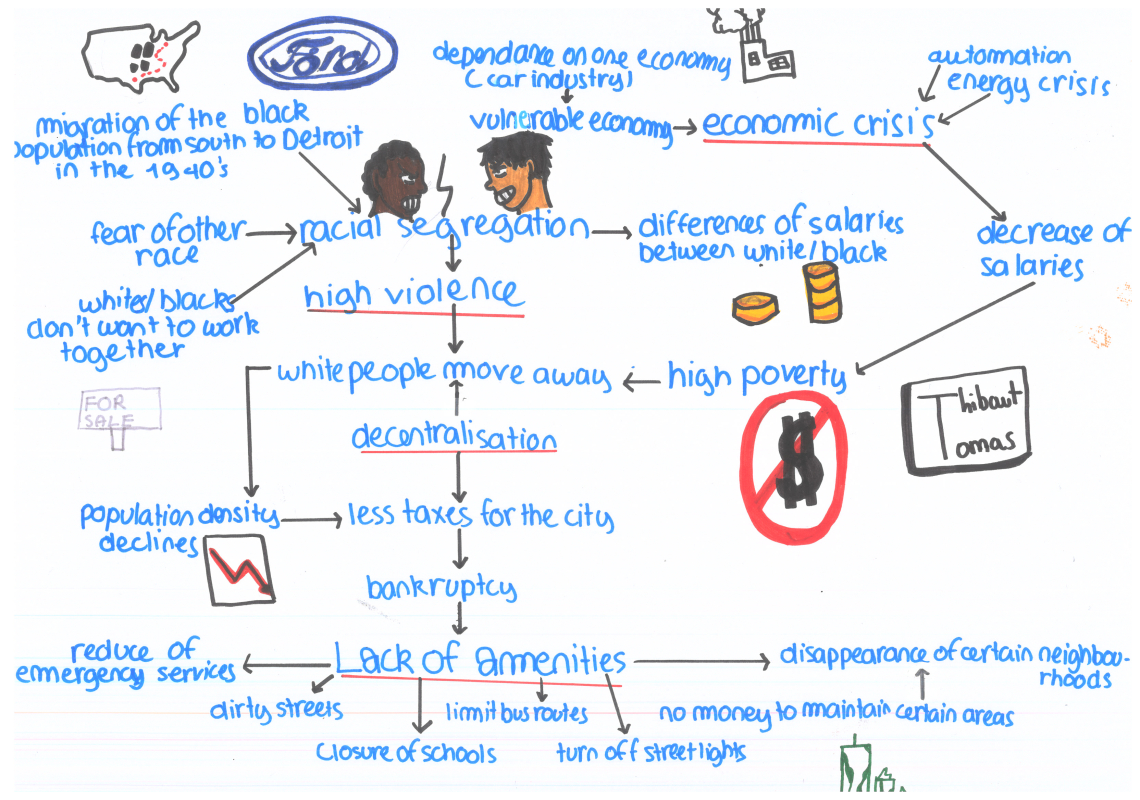 Ford
dependance on one economy
(car industry)
automation
energy crisis
migration of the black
population from south to Detroit
in the 1940's
vulnerable economy
economic crisis
fear of other
race
racial segregation
differences of salaries
between white/black
decrease of
salaries
whites/blacks
don't want to work
together
high violence
white people move away
high poverty
FOR
SALE
Thibaut
Tomas
$
decentralisation
population density
declines
less taxes for the city
bankruptcy
reduce of
emmergency services
Lack of amenities
disappearance of certain neighbou-
rhoods
dirty streets
limit bus routes
no money to maintain certain areas
closure of schools
turn off streetlights